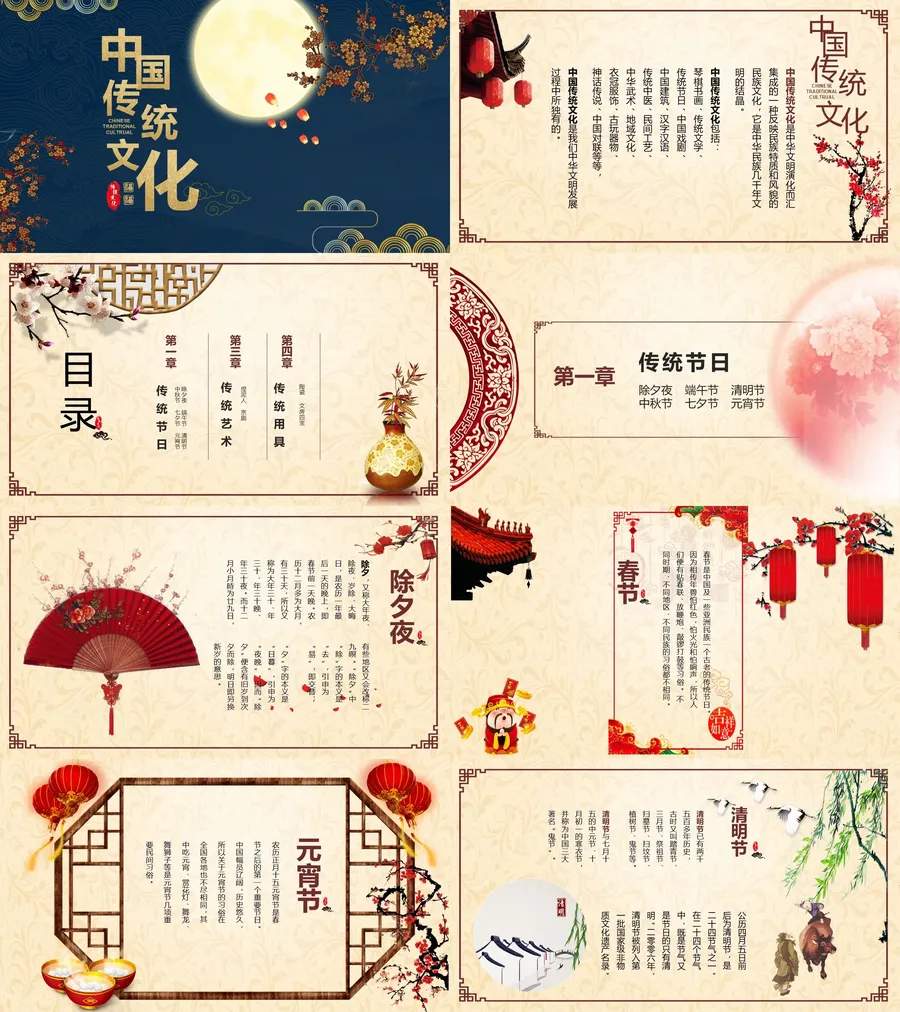 中国传统文化
CHINESE
TRADITIONAL
CULTRUAL
中国传统文化
CHINESE
TRADITIONAL
CULTRUAL
中国传统文化是中华文明演化而汇
集成的一种反映民族特质和风貌的
民族文化，它是中华民族几千年文
明的结晶。
中国传统文化包括：
琴棋书画、传统文学、
传统节日、中国戏剧、
中国建筑、汉字汉语、
传统中医、民间工艺、
中华武术、地域文化、
衣冠服饰、古玩器物、
神话传说、中国对联等等，
中国传统文化是我们中华文明发展
过程中所独有的。
目录
第一章
传统节日
除夕夜 端午节 清明节
中秋节 七夕节 元宵节
第三章
传统艺术
捏泥人 京剧
第四章
传统用具
陶瓷 文房四宝
第一章
传统节日
除夕夜 端午节 清明节
中秋节 七夕节 元宵节
除夕夜
除夕，又称大年夜、
除夜、岁除、大晦
日，是农历一年最
后一天的晚上，即
春节前一天晚。农
历十二月多为大月，
有三十天，所以又
称为大年三十、年
三十、年三十晚、
年三十夜。而十二
月小月時为廿九日，
有些地区又会改称二
九暝。“除夕”中
“除”字的本义是
“去”，引申为
“易”，即交替；
“夕”字的本义是
“日暮”，引申为
“夜晚”。因而“除
夕”便含有旧岁到次
夕而除，明日即另换
新岁的意思。
春节
春节是中国及一些亚洲民族一个古老的传统节日。
因为相传年兽怕红色，怕火光和怕响声，所以人
们便有贴春联、放鞭炮、敲锣打鼓等习俗。不
同时期、不同地区、不同民族的习俗都不相同。
吉祥
如意
元宵节
农历正月十五元宵节是春
节之后的第一个重要节日。
中国幅员辽阔，历史悠久，
所以关于元宵节的习俗在
全国各地也不尽相同，其
中吃元宵、赏花灯、舞龙、
舞狮子等是元宵节几项重
要民间习俗。
清明节
清明节已有两千
五百多年历史，
古时又叫踏青节、
三月节、祭祖节、
扫墓节、扫坟节、
植树节、鬼节等。
清明节与七月十
五的中元节、十
月初一的寒衣节，
并称为中国三大
著名“鬼节”。
公历四月五日前
后为清明节，是
二十四节气之一。
在二十四个节气
中，既是节气又
是节日的只有清
明。二零零六年，
清明节被列入第
一批国家级非物
质文化遗产名录。
清明